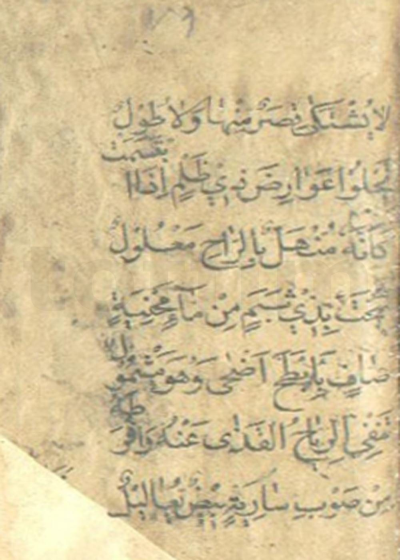 ١٧٩
لا يُشْتَكٰى قِصَرٌ مِنْهَا وَلا طُوْلُ
تَجْلُوا عَوَارِضَ ذِي ظَلْمٍ اِذَا ابْتَسَمَتْ
كَاَنَّهُ مُنْهَلٌ بِالرَّاحِ مَعْلُوْلُ
شُجَّتْ بِذِي شَبَمٍ مِنْ مَآءِ مَحْنِيَةٍ
صَافٍ بِاَبْطَحَ اَضْحٰى وَهُوَ مَشْمُوْلُ
تَنْفِي الرِّيَاحُ الْقَذٰى عَنْهُ وَاَفْرَطَهُ
مِنْ صَوْبِ سَارِيَةٍ بِيْضٌ يَعَالِيْلُ